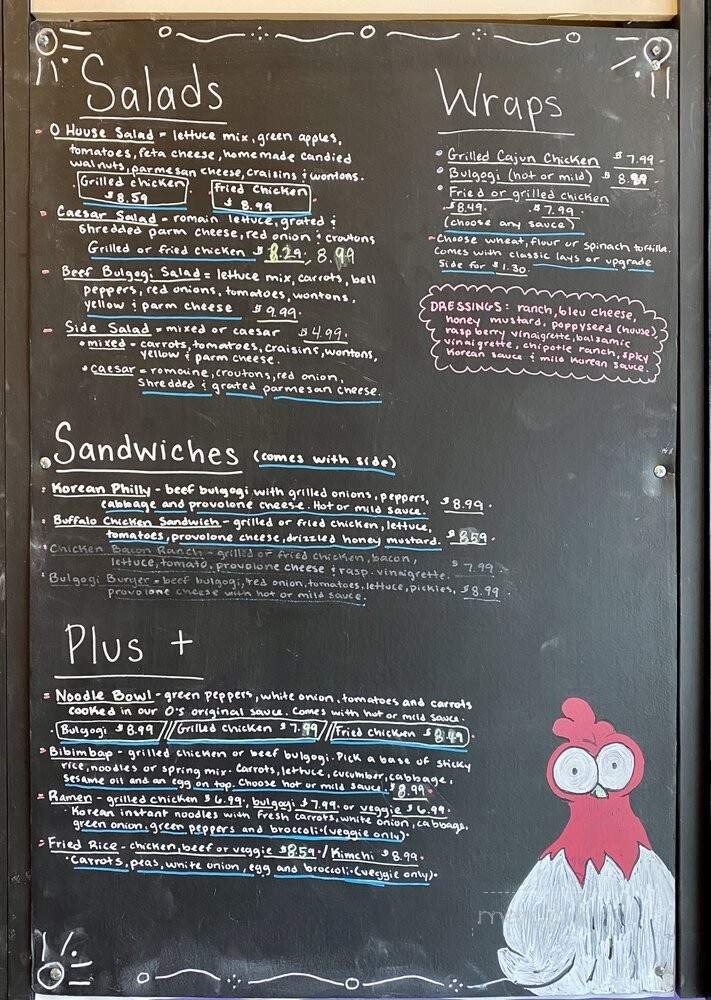 Salads
- O House Salad = lettuce mix, green apples,
tomatoes, feta cheese, homemade candied
walnuts, parmesan cheese, craisins & wontons.
Grilled chicken
$8.59
Fried Chicken
$8.99
- Caesar Salad - romain lettuce, grated &
shredded parm cheese, red onion & croutons
Grilled or fried chicken $8.29, 8.99
- Beef Bulgogi Salad = lettuce mix, carrots, bell
peppers, red onions, tomatoes, wontons,
yellow & parm cheese $9.99.
- Side Salad = mixed or caesar $4.99.
• mixed - carrots, tomatoes, craisins, wontons,
yellow & parm cheese.
• caesar = romaine, croutons, red onion,
shredded & grated parmesan cheese.
Wraps
• Grilled Cajun Chicken $7.99
• Bulgogi (hot or mild) $8.99
• Fried or grilled chicken
$8.49. $7.99.
(choose any sauce)
- Choose wheat, flour or spinach tortilla.
Comes with classic lays or upgrade
Side for $1.30.
DRESSINGS: ranch, bleu cheese,
honey mustard, poppyseed (house)
raspberry vinaigrette, balsamic
vinaigrette, chipotle ranch, spicy
Korean sauce & mild Korean sauce.
Sandwiches (comes with side)
• Korean Philly - beef bulgogi with grilled onions, peppers,
cabbage and provolone cheese. Hot or mild sauce. $8.99.
• Buffalo Chicken Sandwich - grilled or fried chicken, lettuce,
tomatoes, provolone cheese, drizzled honey mustard. $8.59
• Chicken Bacon Ranch - grilled or fried chicken, bacon,
lettuce, tomato, provolone cheese & rasp. vinaigrette. $7.99
• Bulgogi Burger - beef bulgogi, red onion, tomatoes, lettuce, pickles, $8.99
provolone cheese with hot or mild sauce.
Plus +
= Noodle Bowl - green peppers, white onion, tomatoes and carrots
cooked in our O's original sauce. Comes with hot or mild sauce.
• Bulgogi $8.99 // Grilled Chicken $7.99 // Fried chicken $8.49.
= Bibimbap - grilled chicken or beef bulgogi. Pick a base of sticky
rice, noodles or spring mix. Carrots, lettuce, cucumber, cabbage,
sesame oil and an egg on top. Choose hot or mild sauce. $8.99.
= Ramen - grilled chicken $6.99, bulgogi $7.99 or veggie $6.99.
• Korean instant noodles with fresh carrots, white onion, cabbage,
green onion, green peppers and broccoli. (veggie only).
= Fried Rice - chicken, beef or veggie $8.59. / Kimchi $8.99.
• Carrots, peas, white onion, egg and broccoli. (veggie only).